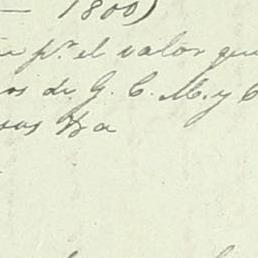 — 1800)
pr el valor que
os de G. C. M. y C
sus